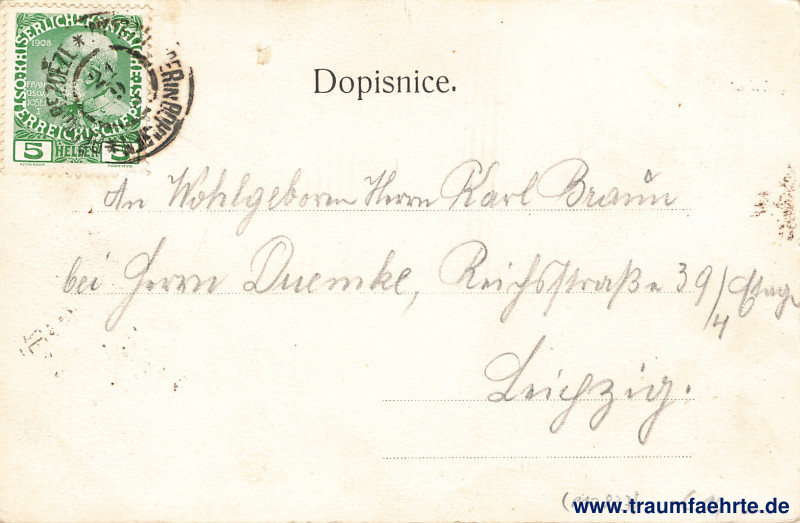 KAISERLICHE KÖNIGLICHE ÖSTERREICHISCHE POST
1908
FRANZ
JOSEF
I.
5 HELLER 5
Dopisnice.
An Wohlgeboren Herrn Karl Braun
bei Herrn Duemke, Reichsstraße 39/4 Etage
Leipzig.
www.traumfaehrte.de